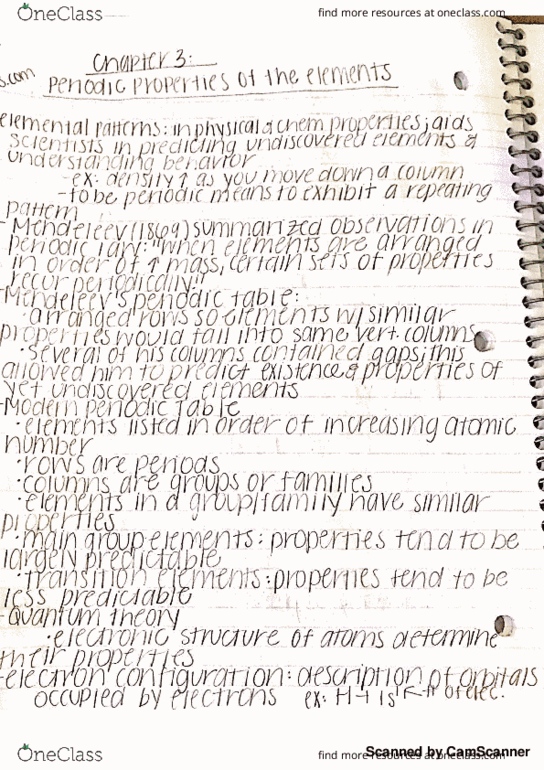 OneClass find more resources at oneclass.com
s.com
Chapter 3:
Periodic properties of the elements
elemental patterns: in physical & chem properties; aids
scientists in predicting undiscovered elements &
understanding behavior
-ex: density ↑ as you move down a column
-to be periodic means to exhibit a repeating
pattern
-Mendeleev (1869) summarized observations in
periodic law: "when elements are arranged
in order of ↑ mass, certain sets of properties
recur periodically"
-Mendeleev's periodic table:
·arranged rows so elements w/ similar
properties would fall into same vert. columns
·several of his columns contained gaps; this
allowed him to predict existence & properties of
yet undiscovered elements
-Modern periodic table
·elements listed in order of increasing atomic
number
·rows are periods
·columns are groups or families
·elements in a group/family have similar
properties
·main group elements: properties tend to be
largely predictable
·transition elements: properties tend to be
less predictable
-quantum theory
·electronic structure of atoms determine
their properties
-electron configuration: description of orbitals
occupied by electrons ex: H→ 1s¹ ← # of elec.
OneClass find more resources at oneclass.com
Scanned by CamScanner